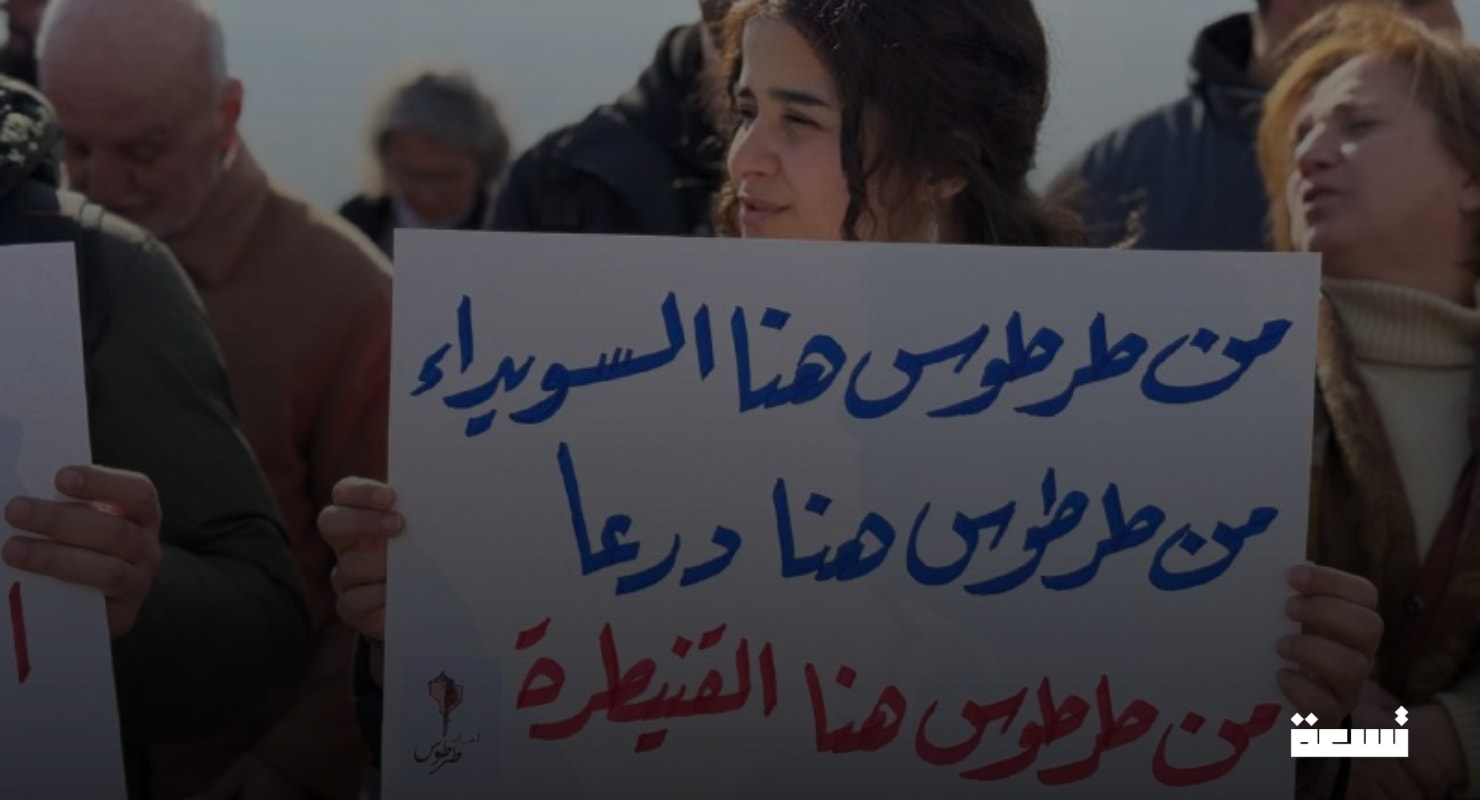 من طرطوس هنا السويداء
من طرطوس هنا درعا
من طرطوس هنا القنيطرة
طرطوس
تسعة